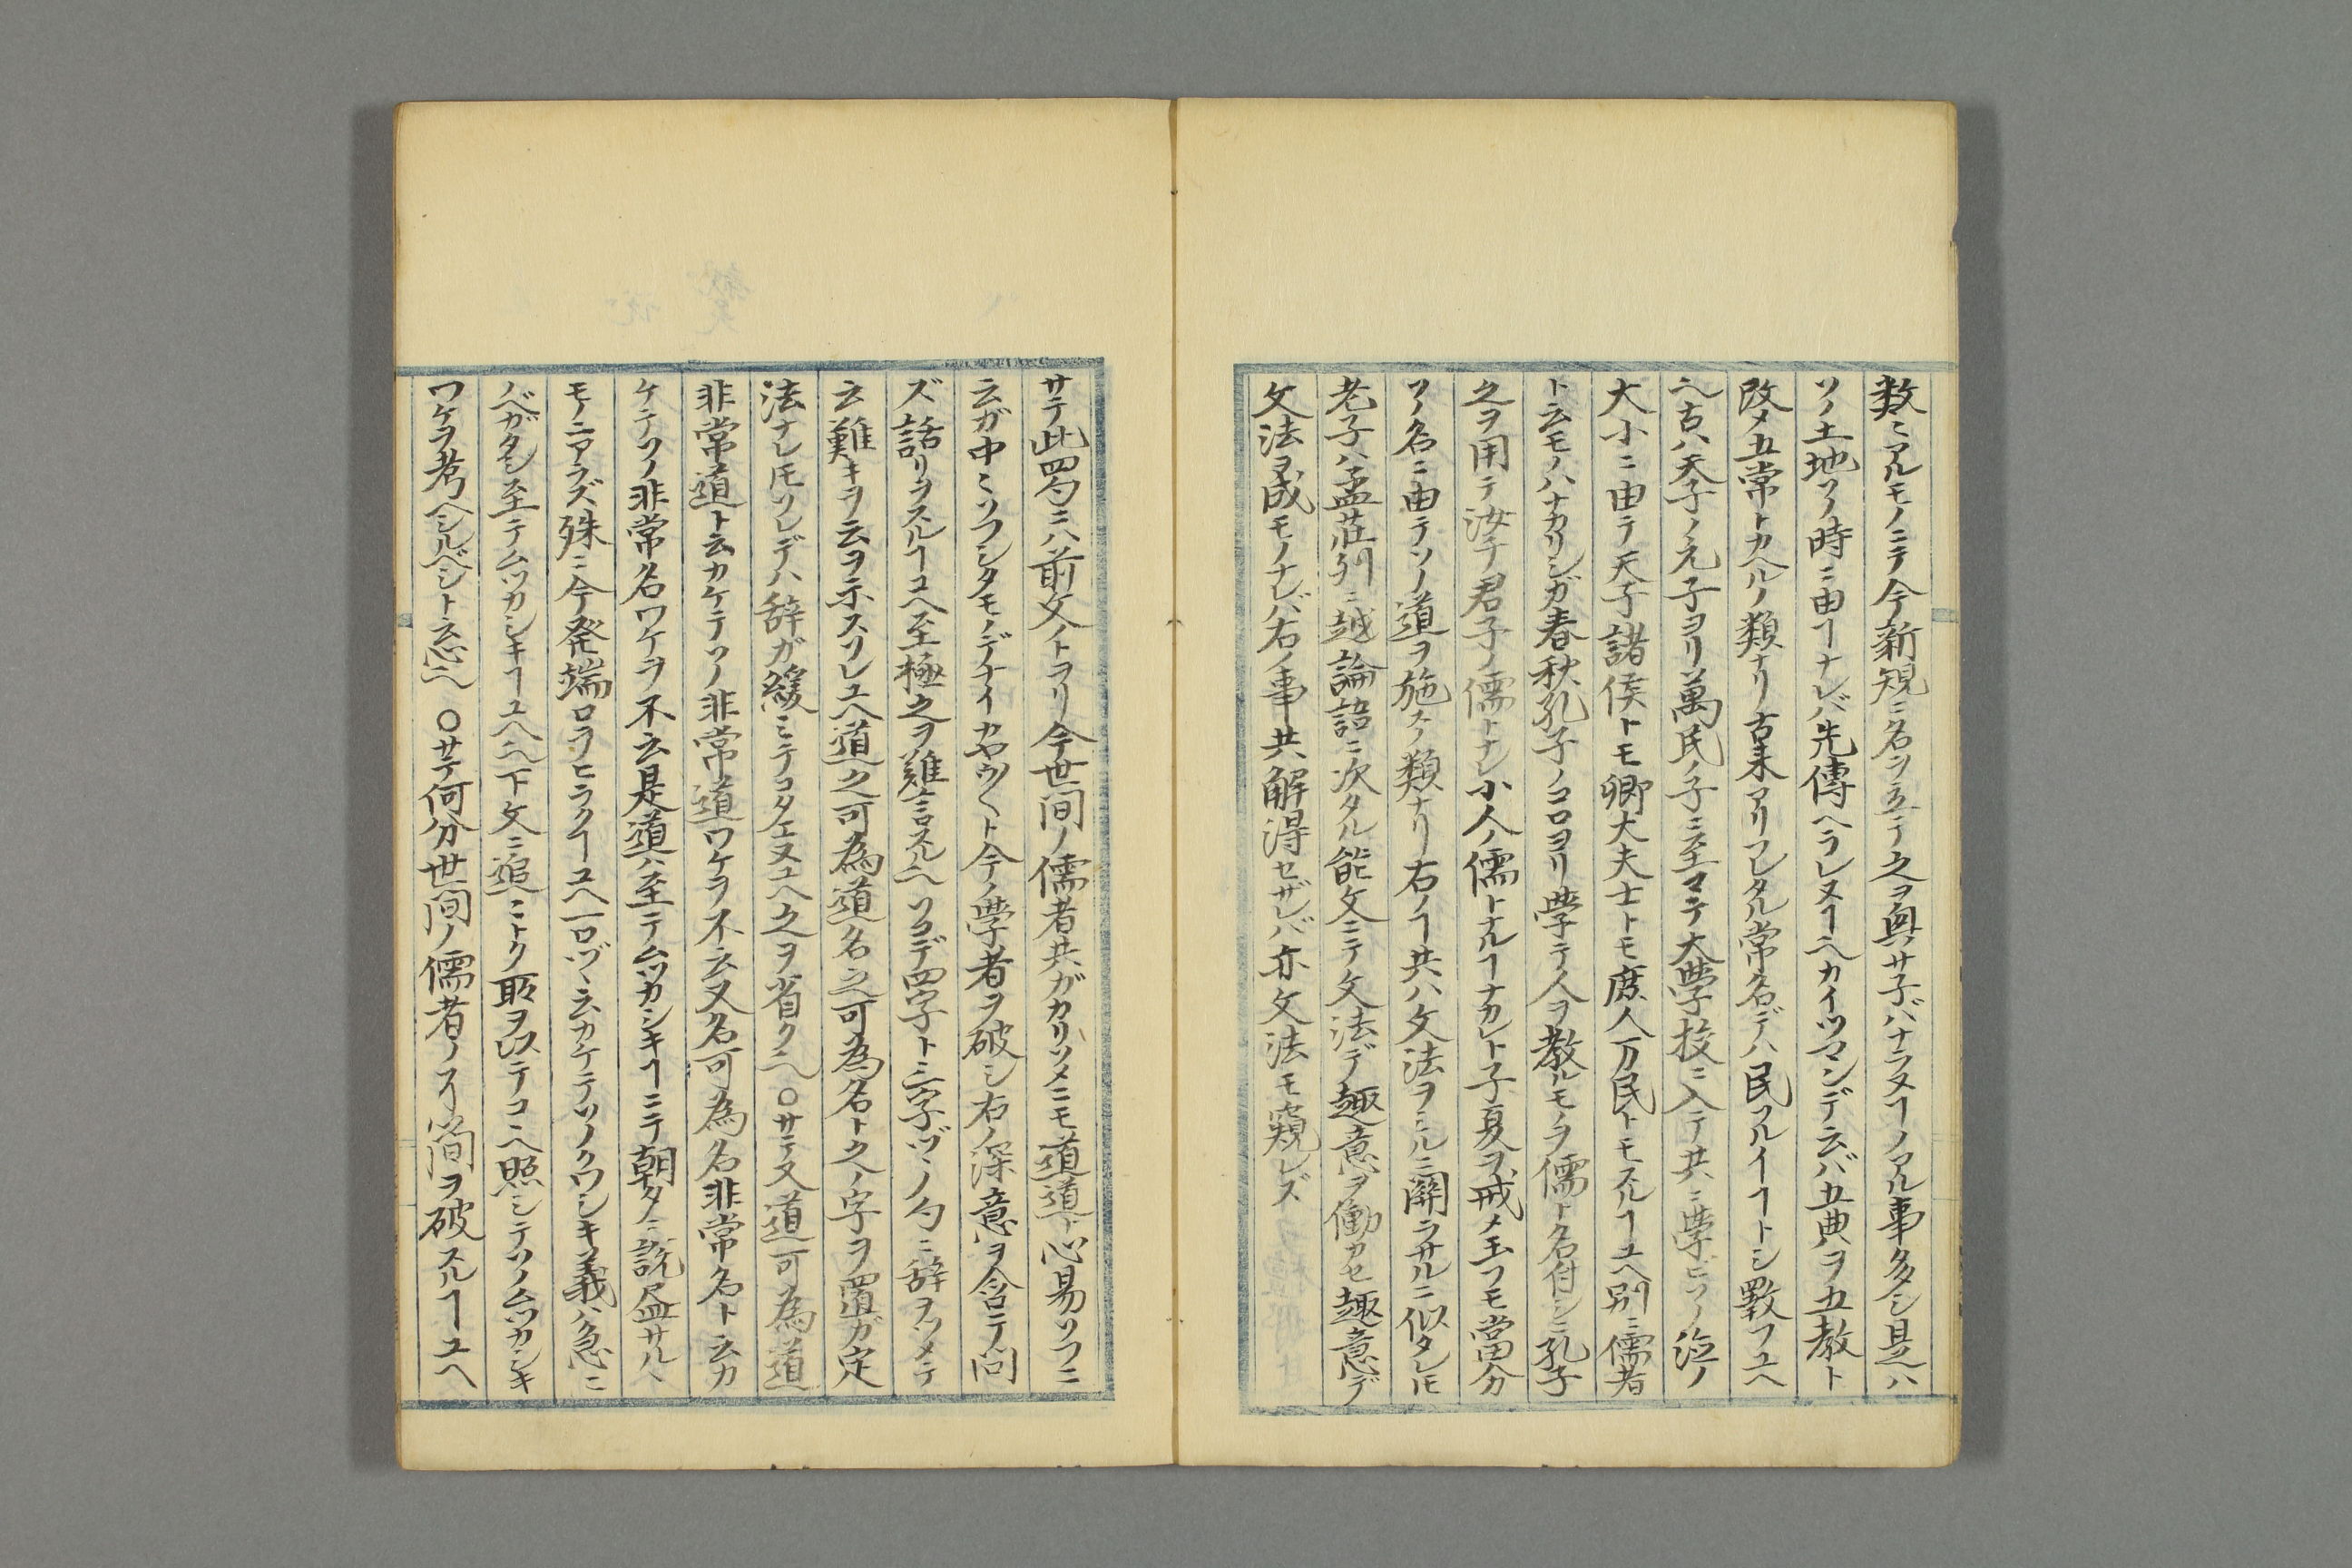 数〻アルモノニテ今新規ニ名ヲ立テ之ヲ與サ子バナラヌヿノアル事多シ是ハ
ソノ土地ソノ時ニ由ヿナレバ先傳ヘラレヌヿ也カイツマンデ云バ五典ヲ五教ト
改メ五常トカヘルノ類ナリ古来アリフレタル常名デハ民フルイヿトシ斁フユヘ
也古ハ天子ノ元子ヨリ萬民ノ子ニ至マテ大學校ニ入テ共ニ學ビソノ
大小ニ由テ天子諸侯トモ卿大夫士トモ庶人万民トモスルヿユヘ別ニ儒者
ト云モノハナカリシガ春秋孔子ノコロヨリ學テ人ヲ教ルモノヲ儒ト名付シニ孔子
之ヲ用テ汝テ君子ノ儒トナレ小人ノ儒トナルヿナカレト子夏ヲ戒メ玉フモ當分
ソノ名ニ由テソノ道ヲ施スノ類ナリ右ノヿ共ハ文法ヲミルニ關ラサルニ似タレ𪜈
老子ハ孟荘列ニ越論語ニ次タル能文ニテ文法デ趣意ヲ働カセ趣意デ
文法ヲ成モノナレバ右ノ事共解得セザレバ亦文法モ窺レズ
サテ此四句ニハ前文ノトヲリ今世间ノ儒者共ガカリソメニモ道道ト心易ソフニ
云ガ中〻ソフシタモノデナイカヤウ〱ト今ノ學者ヲ破シ右ノ深意ヲ含ニテ问
ズ話リヲスルヿユヘ至極之ヲ難言スル也ソコデ四字ト三字ヅヽノ句ニ辞ヲツメテ
云難キヲ云ヲ示スソレユヘ道之可為道名之可為名ト之ノ字ヲ置ガ定
法ナレ𪜈ソレデハ辞ガ緩ミテコタエヌユヘ之ヲ省ク也〇サテ又道可為道
非常道ト云カケテソノ非常道ワケヲ不云又名可為名非常名ト云カ
ケテソノ非常名ワケヲ不云是道ハ至テムツカシキヿニテ朝夕ニ説盡サルヽ
モノニアラズ殊ニ今発端口ヲヒラクヿユヘ一口ヅヽ云カケテソノクワシキ義ハ急ニ
ノベガタシ至テムツカシキヿユヘ也下文ニ追〻トク取ヲ以テコヽヘ照シテソノムツカシキ
ワケヲ考ヘシルベシト云忩也　〇サテ何分世间ノ儒者ノスイ简ヲ破スルヿユヘ